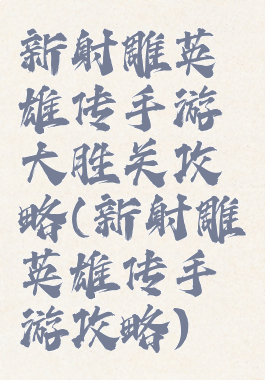 新射雕英
雄传手游
大胜关攻
略(新射雕
英雄传手
游攻略)